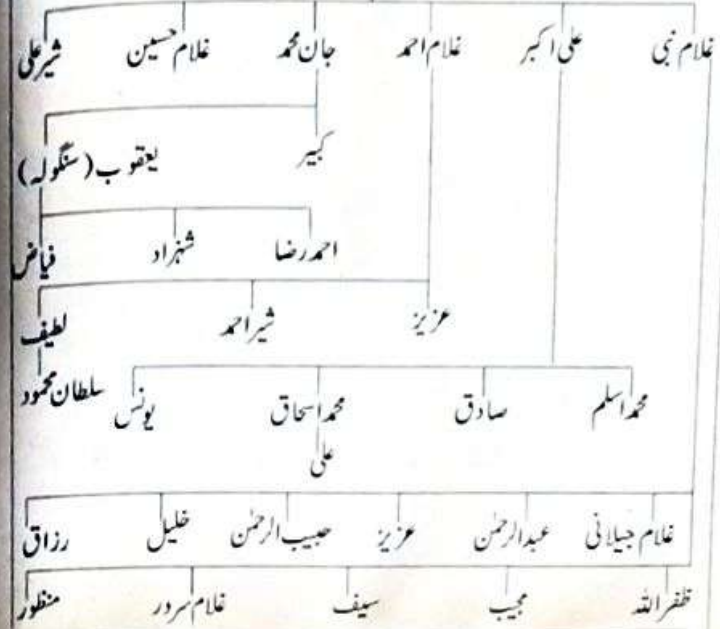 غلام نبی علی اکبر غلام احمد جان محمد غلام حسین شیر علی
کبیر یعقوب (سنگولہ)
احمد رضا شہزاد فیاض
عزیز شیر احمد لطیف
سلطان محمود
محمد اسلم صادق محمد اسحاق یونس
علی
غلام جیلانی عبدالرحمٰن عزیز حبیب الرحمٰن خلیل رزاق
ظفر اللہ مجیب سیف غلام سردر منظور